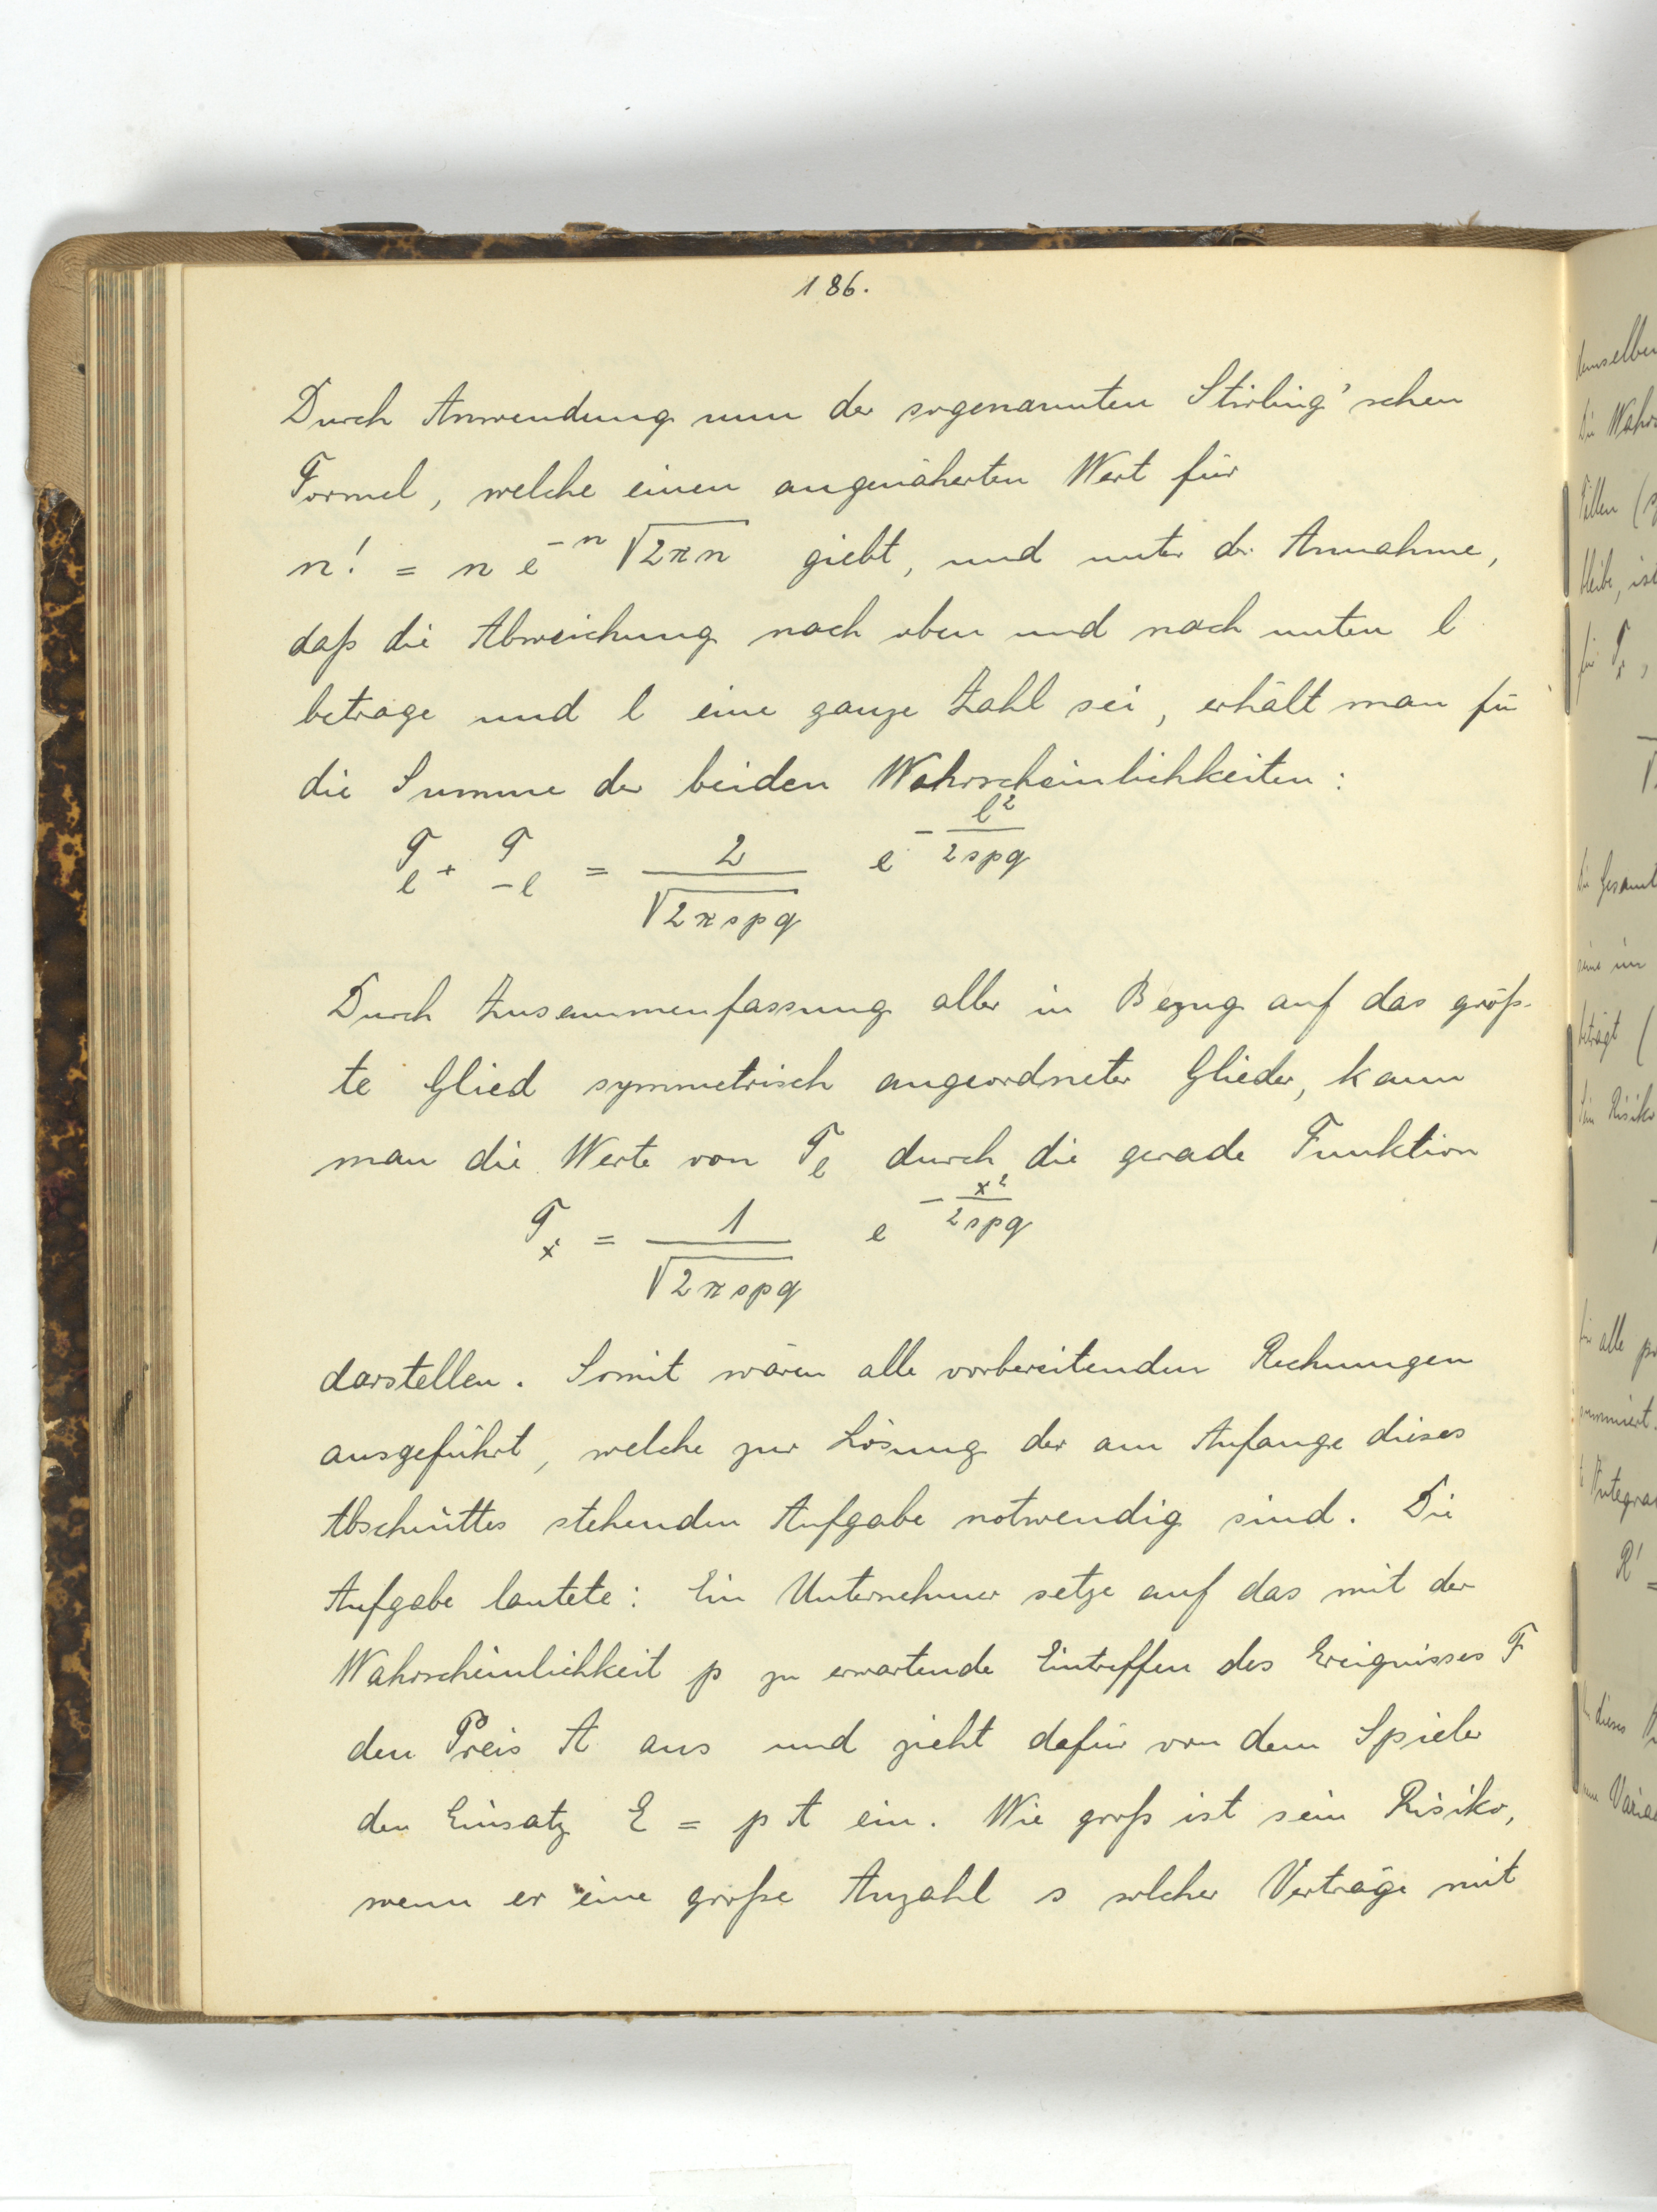 186.
Durch Anwendung nun der sogenannten Stirling'schen
Formel, welche einen angenäherten Wert für
n! = n e^{-n} √(2πn) giebt, und unter der Annahme,
daß die Abweichung nach oben und nach unten l
betrage und l eine ganze Zahl sei, erhält man für
die Summe der beiden Wahrscheinlichkeiten:
T_l + T_{-l} = 2/√(2πspq) e^{-l²/2spq}
Durch Zusammenfassung aller in Bezug auf das größ-
te Glied symmetrisch angeordneter Glieder, kann
man die Werte von T_l durch die gerade Funktion
T_x = 1/√(2πspq) e^{-x²/2spq}
darstellen. Somit wären alle vorbereitenden Rechnungen
ausgeführt, welche zur Lösung der am Anfange dieses
Abschnittes stehenden Aufgabe notwendig sind. Die
Aufgabe lautete: Ein Unternehmer setze auf das mit der
Wahrscheinlichkeit p zu erwartende Eintreffen des Ereignisses F
den Preis A aus und zieht dafür von dem Spieler
den Einsatz E = p A ein. Wie groß ist sein Risiko,
wenn er eine große Anzahl s solcher Verträge mit
demselben
Die Wahrs
Fällen (s
bleibe, ist
für T_x,
Die Gesamt
seine im
beträgt (
Sein Risiko
für alle po
summiert.
Integra
R' =
dieses
Varia